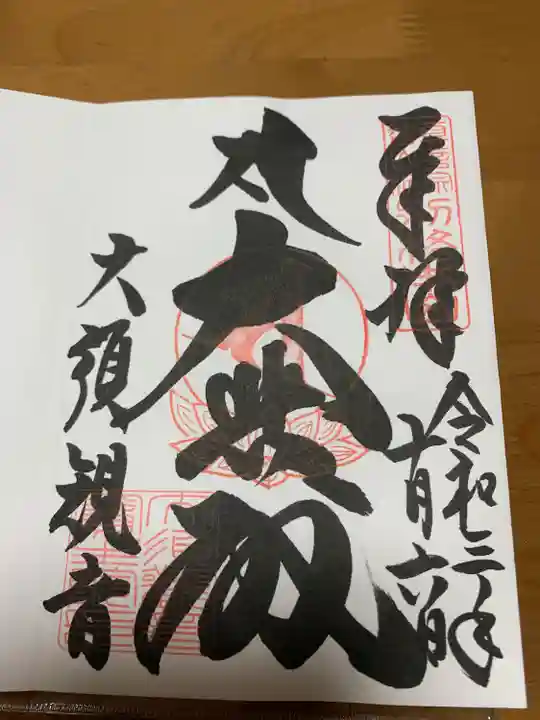 奉拝
令和 年
十月六日
大悲殿
大須観音